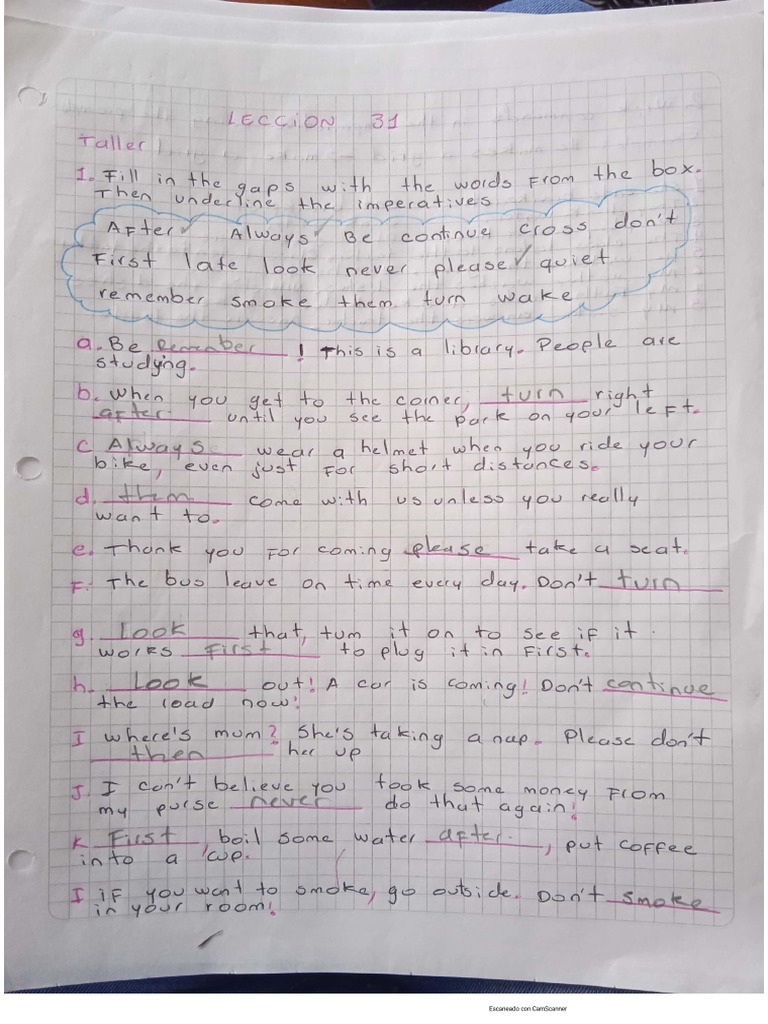 LECCION 31
Taller
1. Fill in the gaps with the words from the box.
Then underline the imperatives
After Always Be continue cross don't
First late look never please quiet
remember smoke them turn wake
a. Be Remember ! This is a library. People are
studying.
b. When you get to the corner, turn right
after until you see the park on your left.
c Always wear a helmet when you ride your
bike, even just for short distances.
d. them come with us unless you really
want to.
e. Thank you for coming please take a seat.
F. The bus leave on time every day. Don't turn
g. look that, turn it on to see if it
works First to plug it in First.
h. Look out! A car is coming! Don't continue
the road now!
I where's mum? She's taking a nap. Please don't
then her up
J. I can't believe you took some money from
my purse never do that again!
K First, boil some water after., put coffee
into a cup.
I if you want to smoke, go outside. Don't smoke
in your room!
Escaneado con CamScanner